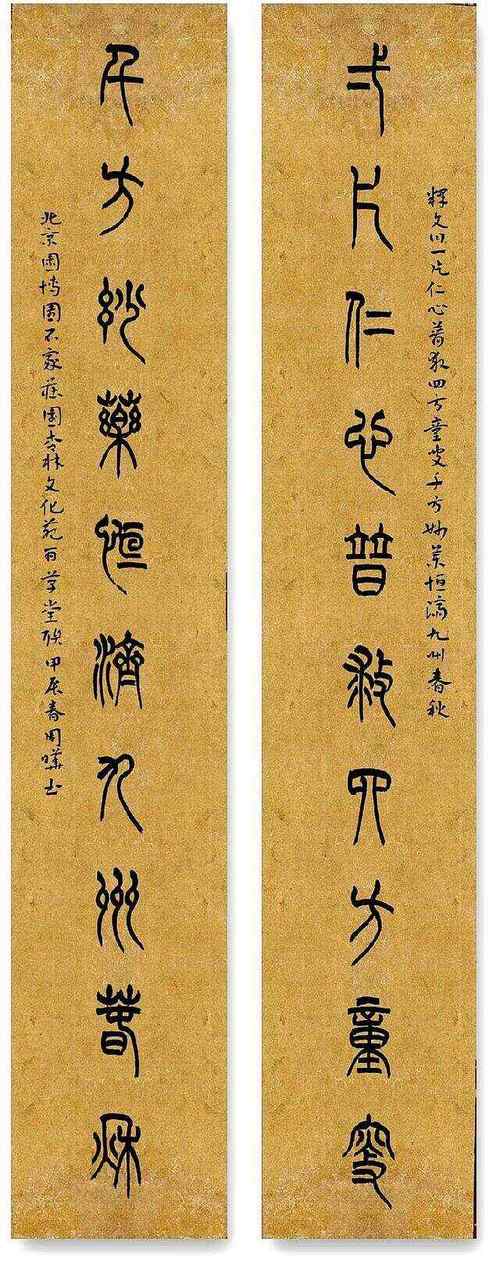 釋文曰一片仁心普救四方童叟千方妙药恒濟九州春秋
弌片仁心普救四方童叟
千方玅藥恒濟九州萅秋
北京園博園石家莊園杏林文化苑百草堂联甲辰春周书